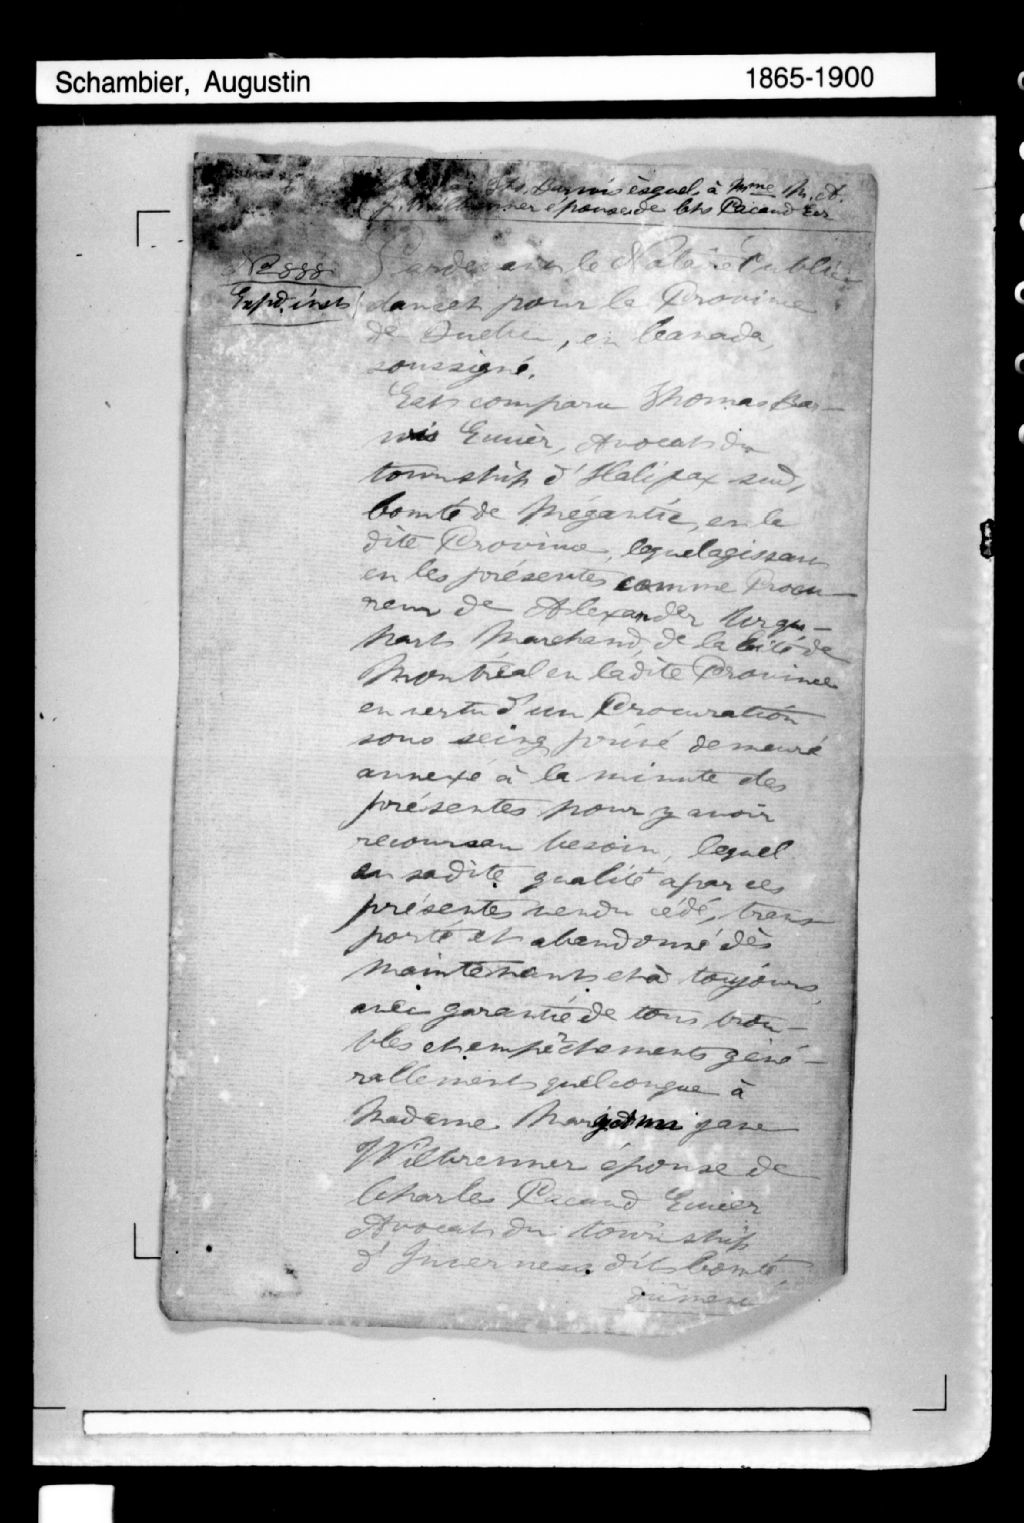 Schambier, Augustin 1865-1900
Ths Barwis èsquel, à Mme M. A.
J. Willbrenner épouse de Chs Pacaud Ecr
No 888
Expd. inst
Pardevant le Notaire Public
dames pour la Province
de Quebec, en Canada,
soussigné.
Est comparu Thomas Bar-
wis Ecuièr, Avocat du
township d'Halifax sud,
Comté de Mégantic, en la
dite Province, lequel agissant
en les présentes comme Procu-
reur de Alexander Urqu-
hart Marchand, de la Cité de
Montréal en la dite Province
en vertu d'un Procuration
sous seing privé demeuré
annexé à la minute des
présentes pour y avoir
recours au besoin, lequel
en sadite qualité a par ces
présentes vendu cédé, trans
porté et abandonné dès
maintenant et à toujours,
avec garantié de tous trou-
bles et empêchements géné-
rallement quelconque à
Madame Mary Ann Jane
Wilbrenner épouse de
Charles Pacaud Ecuier
Avocat du township
d'Inverness dit Comté